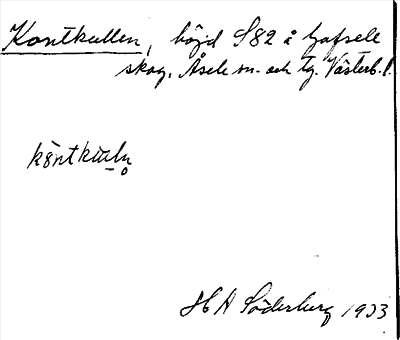 Kontkullen, höjd 582 å Gafsele
skog, Åsele sn. och tg. Västerb. l.
kåntkuln̥
H A Söderberg 1933